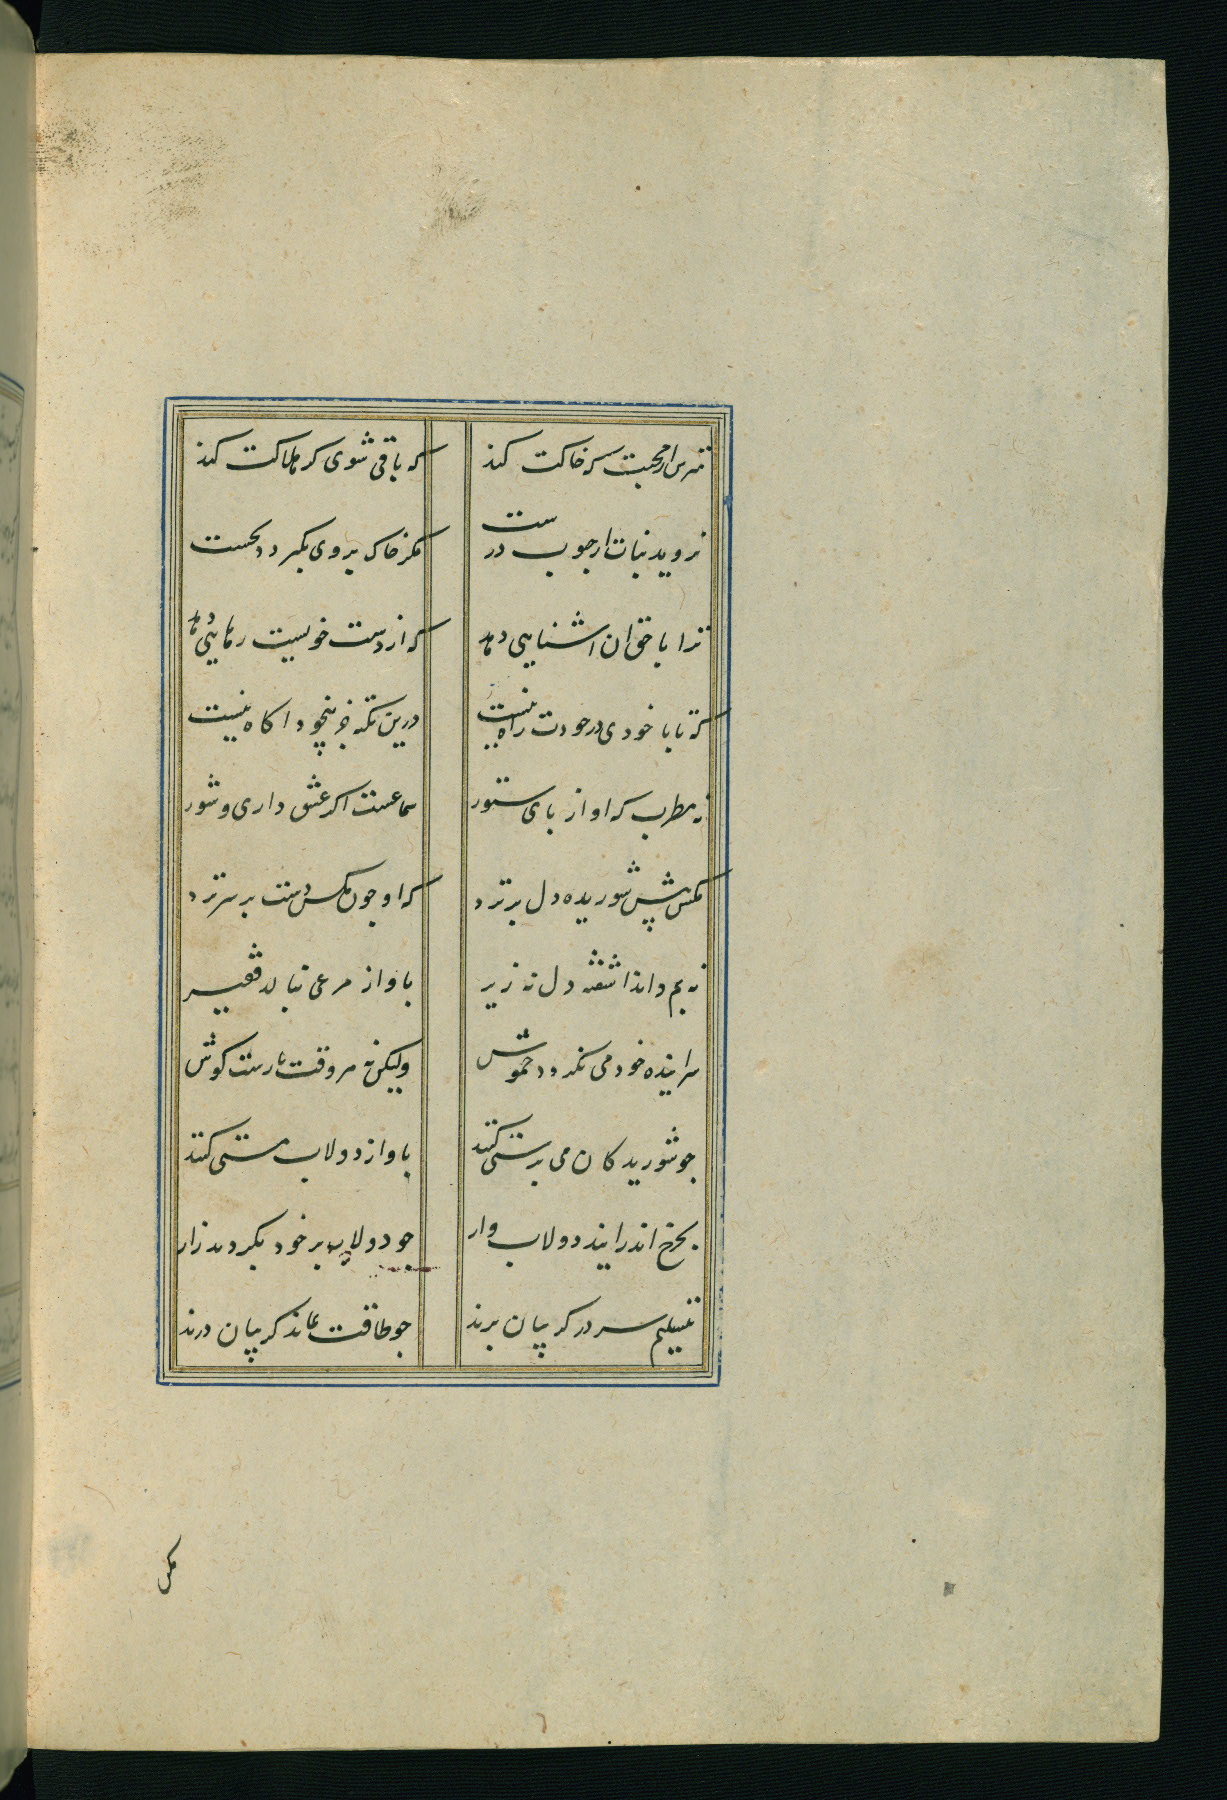 مترس از محبت که خاکت کند که باقی شوی کر هلاکت کند
نروید نبات از حبوب درست مکر خاک بروی بکردد نخست
ترا با حق ان اشنایی دهد که از دست خویست رهایی دهد
که تا با خودی در خودت راه نیست درین نکته جز بیخود اکاه نیست
نه مطرب که اواز پای ستور سماعست اکر عشق داری و شور
مکس پیش شوریده دل پر نزد که او چون مکس دست بر سر نزد
نه بم داند اشفته دل نه زیر باواز مرغی بنالد فقیر
سراینده خود می نکردد خموش ولیکن نه هر وقت بازست کوش
جو شوریدکان می پرستی کنند باواز دولاب مستی کنند
بجرخ اندر ایند دولاب وار جو دولاب بر خود بکریند زار
بتسلیم سر در کریبان برند جو طاقت نماند کریبان درند
مکن